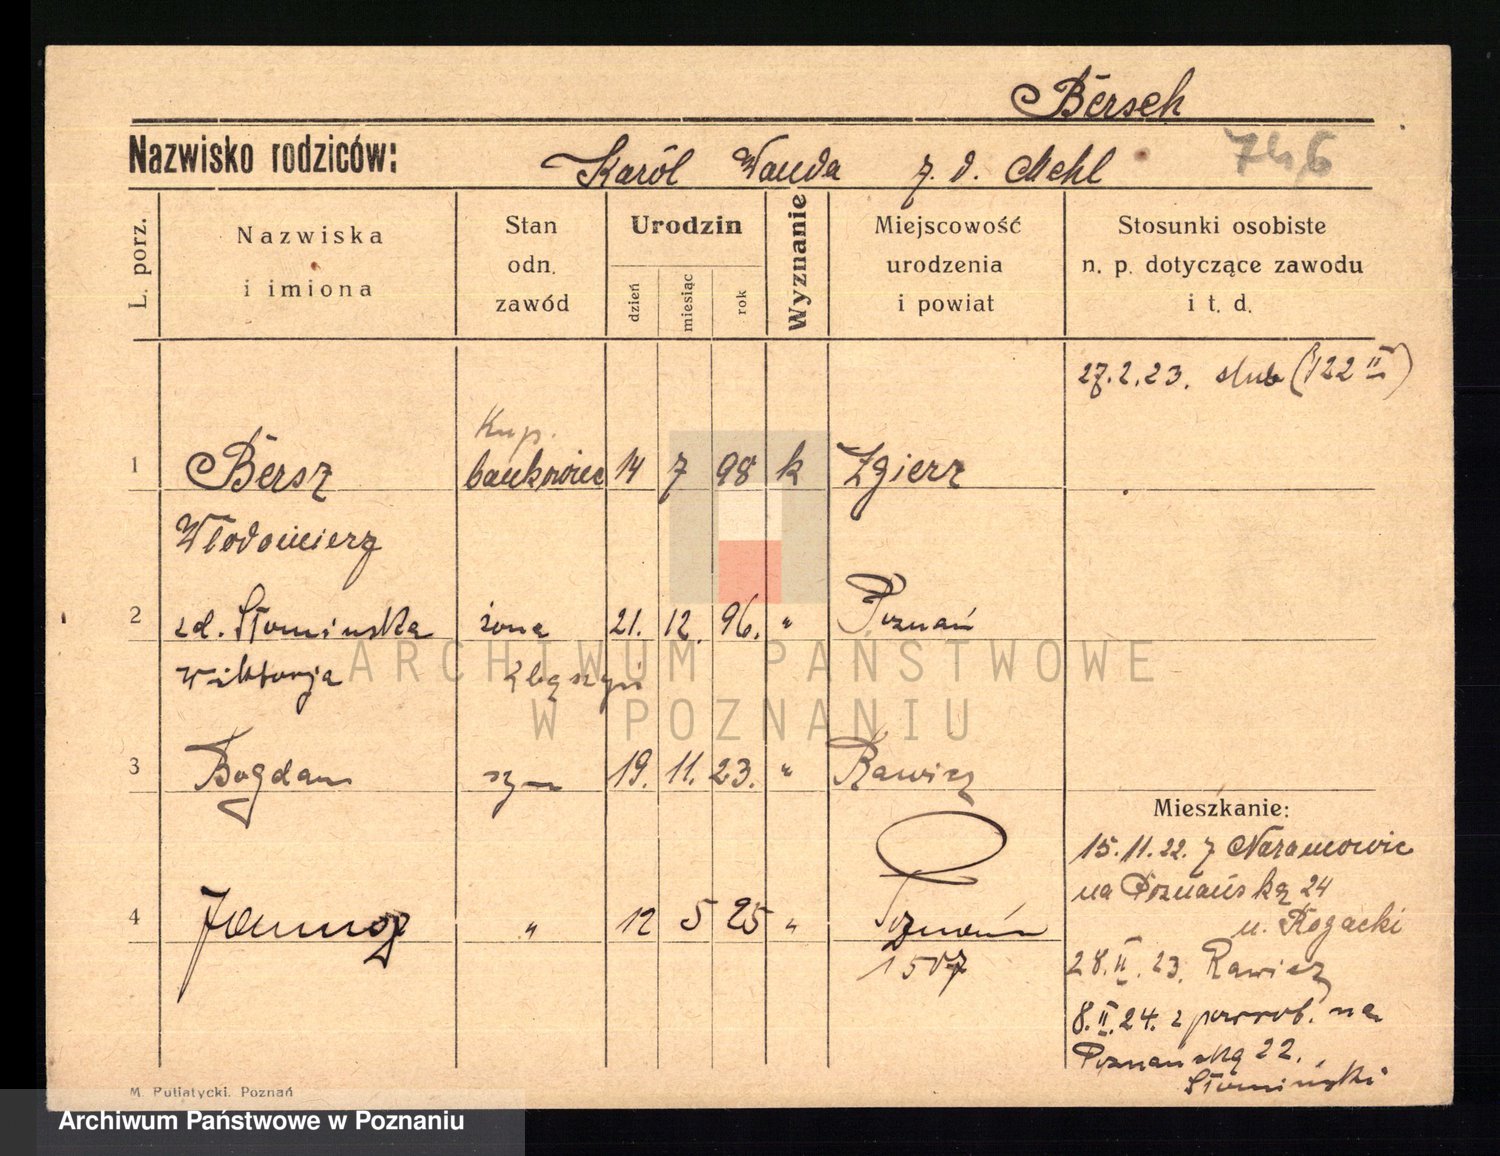 Bersch
Nazwisko rodziców:
Karól Wanda z. d. Mehl
L. porz.
Nazwiska
i imiona
Stan
odn.
zawód
Urodzin
dzień
miesiąc
rok
Wyznanie
Miejscowość
urodzenia
i powiat
Stosunki osobiste
n. p. dotyczące zawodu
i t. d.
27.2.23. slub (122 II)
Kup.
1 Bersz bankowiec 14 7 98 k Zgierz
Włodzimierz
2 zd. Słomińska żona 21. 12. 96. " Poznań
Wiktorja Zbąszyń
ARCHIWUM PAŃSTWOWE
W POZNANIU
3 Bogdan syn 19. 11. 23. " Rawicz
Mieszkanie:
15.11.22. z Naramowic
na Poznańską 24
u. Rogacki
4 " 12 5 25 " Poznań
1507
28.II.23. Rawicz
8.II.24. z powrob. na
Poznańską 22.
Słomiński
M. Putiatycki. Poznań
Archiwum Państwowe w Poznaniu